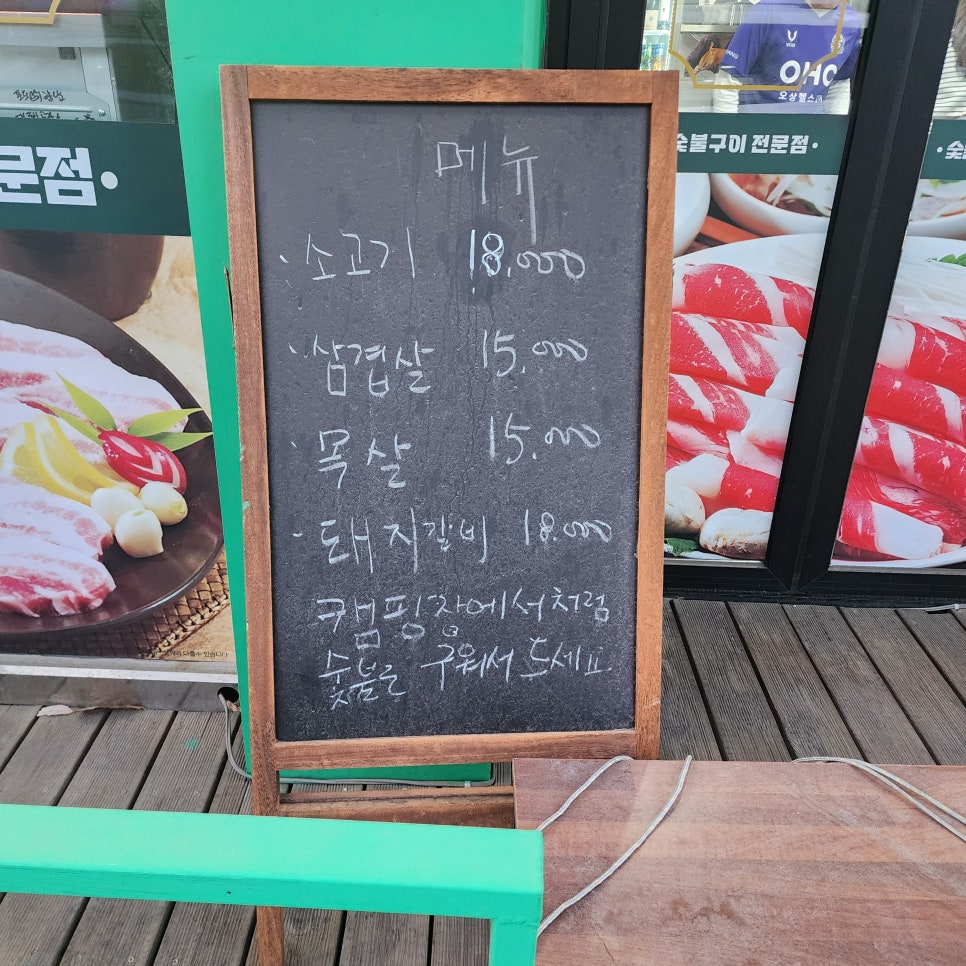 메뉴
· 소고기 18.000
· 삼겹살 15.000
· 목살 15.000
· 돼지갈비 18.000
캠핑장에서처럼
숯불로 구워서 드세요
문점·
숯불구이 전문점·
OHC
오상헬스